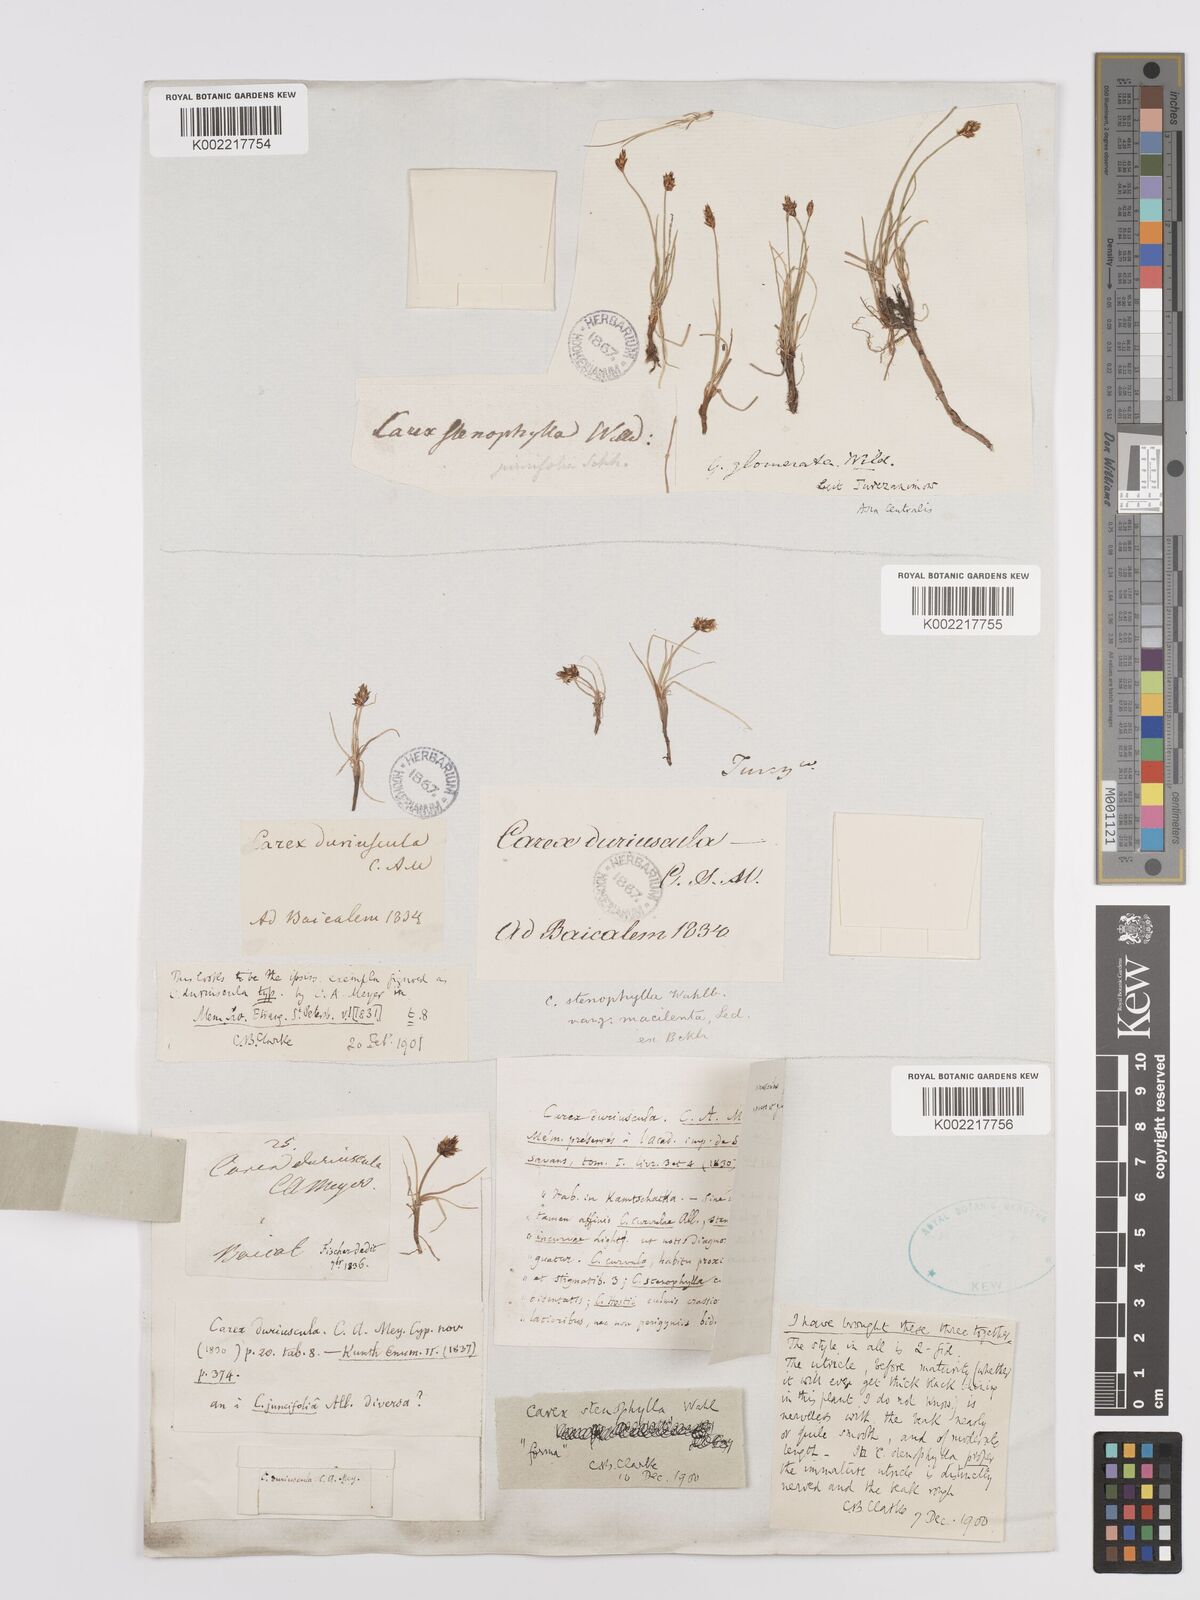 ROYAL BOTANIC GARDENS KEW
K002217754
HERBARIUM
HOOKERIANUM
1867.
Carex stenophylla Wahl:
juncifolia Schk.
G. glomerata. Wild.
Legit Turczaninow
Asia Centralis
ROYAL BOTANIC GARDENS KEW
K002217755
HERBARIUM
HOOKERIANUM
1867.
Turcz
Carex duriuscula
C. AM
Ad Baicalem 1834
Carex duriuscula —
C. A. M.
HERBARIUM
HOOKERIANUM
1867.
Ad Baicalem 1830
This looks to be the ipsiss. exempla figured as
C. duriuscula typ. by C. A. Meyer in
Mem. Sav. Etrang. St Petersb. v.1 [1831] t. 8
C.B. Clarke 1901
C. stenophylla Wahlb.
macilenta, Led.
ex
ROYAL BOTANIC GARDENS KEW
K002217756
25.
Carex duriuscula
CA Meyer.
Baical Fischer dedit
7br 1836.
Carex duriuscula. C. A. Mey. Cyp. nov
(1830) p. 20. tab. 8. — Kunth Enum. II. (1837)
p. 374.
an à C. juncifoliâ All. diversa?
C. duriuscula C. A. Mey.
Carex duriuscula. C. A. M
Mém. présentés à l'acad. imp. de S
savans, tom. I. livr. 3 et 4 (1830)
" Hab. in Kamtschatka. — Sine
" tamen affinis C. curvulae All., sten
" incurvae Lightf. ut notis diagno
guatur. C. curvula, habitu proxi
" et stigmatib. 3; C. stenophylla c
C. Hostii culmis crassio
" latioribus, nec non perigyniis bid.
Carex stenophylla Wahl
"forma"
C.B. Clarke
16 Dec. 1900
ROYAL BOTANIC GARDENS
KEW
I have brought these three together.
The style in all is 2-fid.
The utricle, before maturity (whether
it will ever get thick black
in this plant I do not know) is
nerveless with the beak nearly
or quite smooth, and of moderate
length — In C. stenophylla proper
the immature utricle is distinctly
nerved and the beak rough
C.B. Clarke
7 Dec. 1900.
inches
Don Williams
M001121
copyright reserved
Royal Botanic Gardens
Kew
0 1 2 3 4 5 6 7 8 9 10
cm